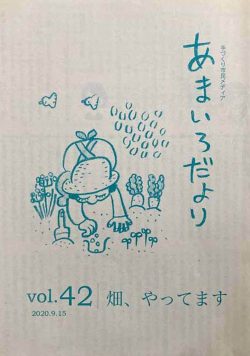 手づくり市民メディア
あまいろだより
vol.42 畑、やってます
2020.9.15